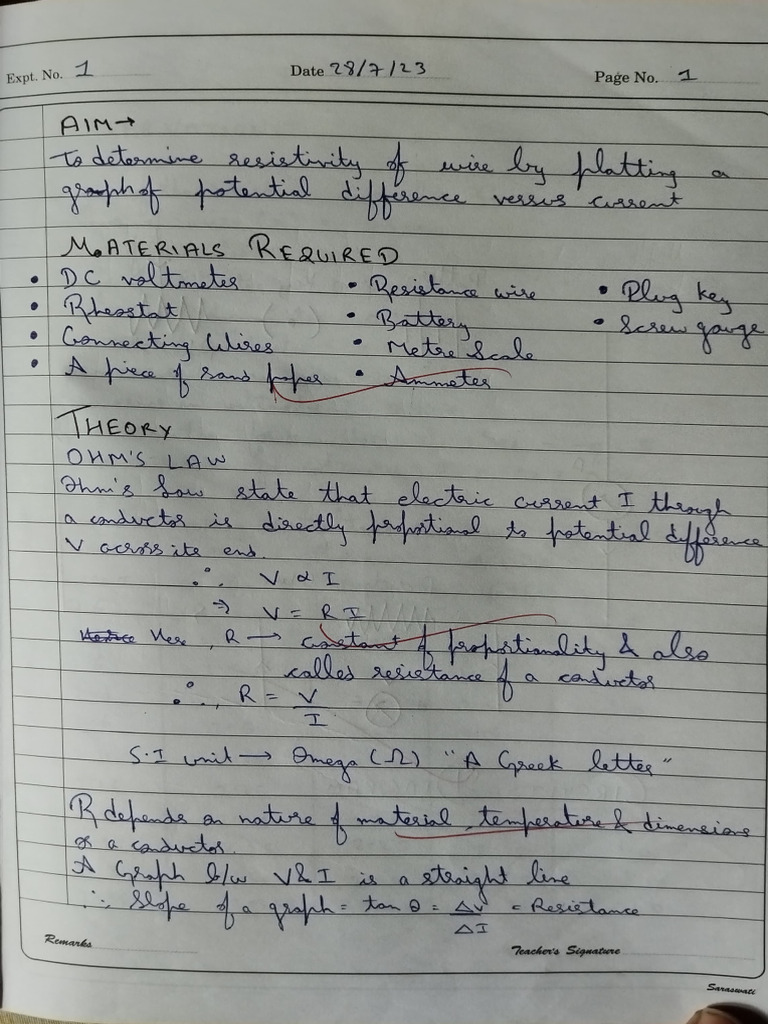 Expt. No. 1 Date 28/7/23 Page No. 1
AIM→
To determine resistivity of wire by platting a
graph of potential difference versus current
MATERIALS REQUIRED
• DC voltmeter • Resistance wire • Plug key
• Rheostat • Battery • Screw gauge
• Connecting Wires • Metre Scale
• A piece of sand paper • Ammeter
THEORY
OHM'S LAW
Ohm's Law state that electric current I through
a conductor is directly proportional to potential difference
V across its end.
∴ V ∝ I
⇒ V = RI
Hence Here, R → constant of proportionality & also
called resistance of a conductor
∴, R = V/I
S.I unit → Omega (Ω) "A Greek letter"
R depends on nature of material, temperature & dimensions
of a conductor.
A Graph b/w V&I is a straight line
∴ Slope of a graph = tan θ = ΔV/ΔI = Resistance
Remarks
Teacher's Signature
Saraswati